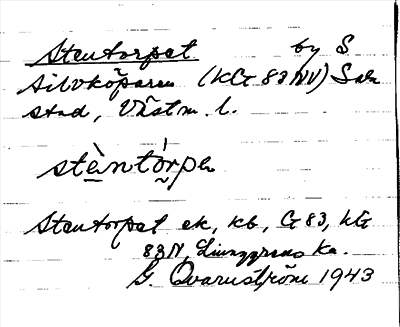 Stentorpet by S
Silvköparen (KG 83 NV) Sala
stad, Västm. l.
stèntórpe
Stentorpet ek, kb, G 83, KG
83 N, Ljunggrens Ka.
G. Qvarnström 1943